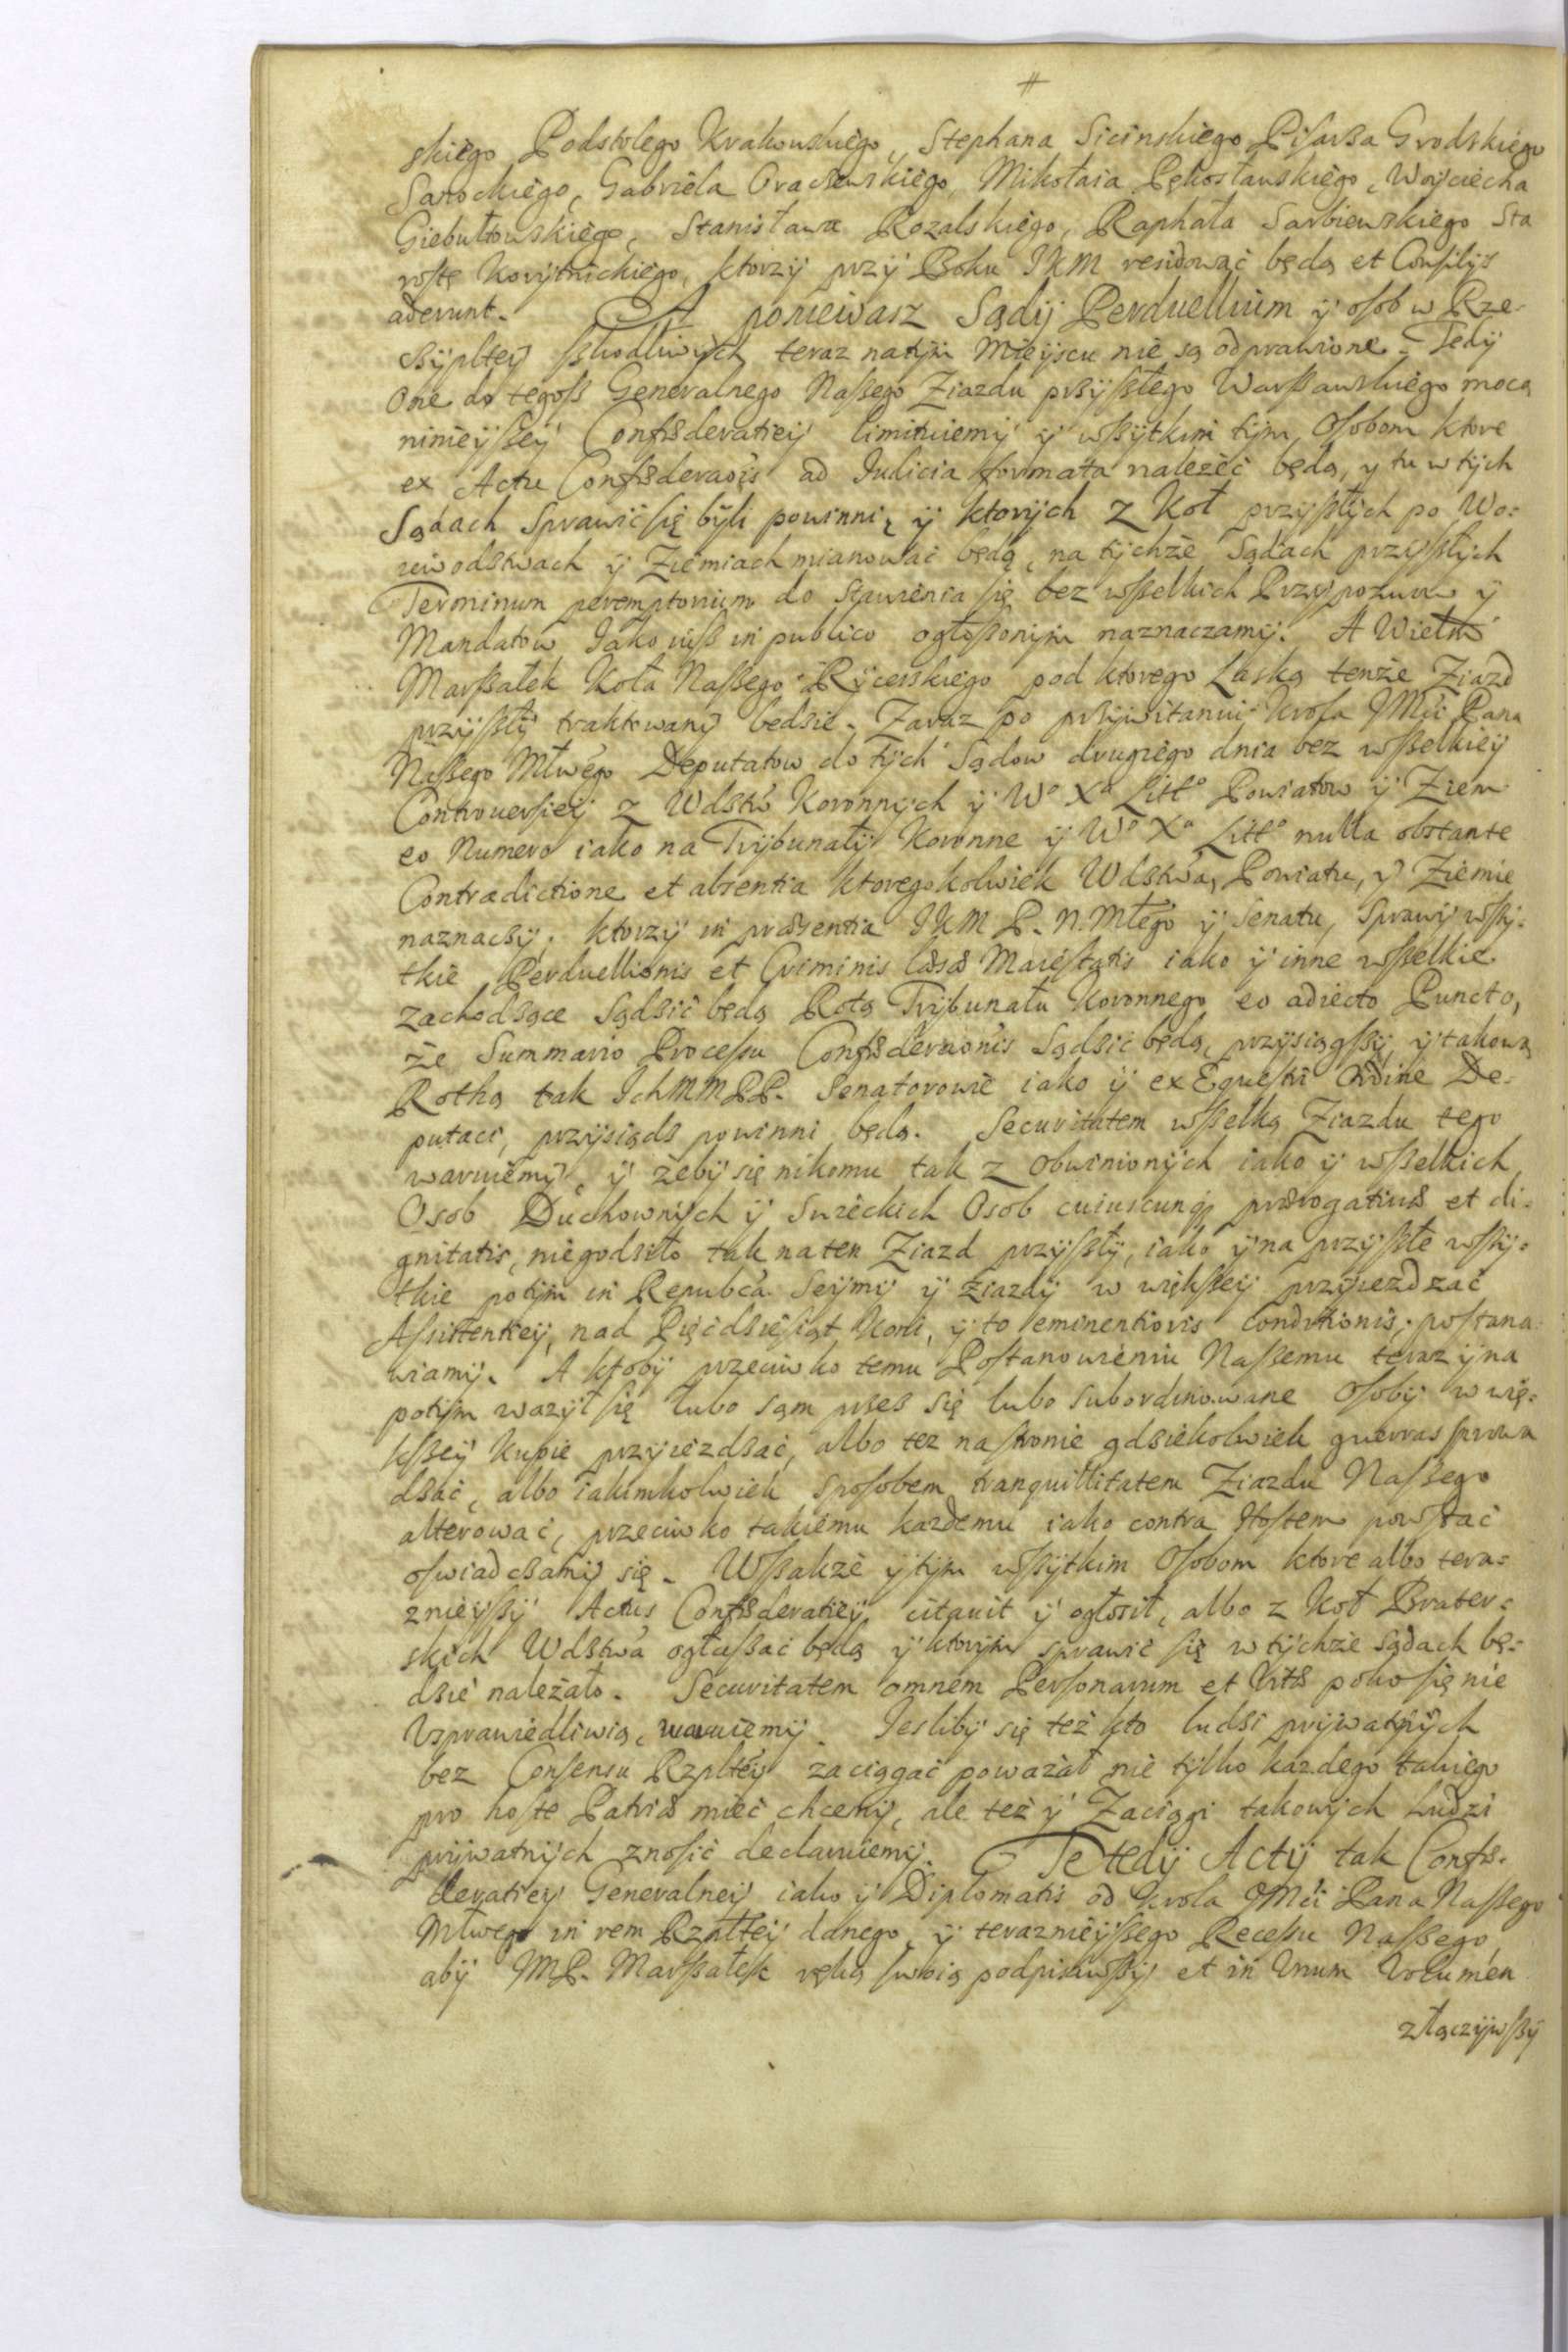 skiego Podstolego Krakowskiego, Stephana Sicinskiego Pisarza Grodskiego
Sanockiego, Gabriela Oraczewskiego, Mikołaia Pękosławskiego, Woyciecha
Giebułtowskiego, Stanisława Rozalskiego, Raphała Sarbiewskiego Sta
rostę Korytnickiego, ktorzy przy Boku JKM residować będą et Consilijs
aderunt. A poniewasz Sądy Perduellium y osob w Rze-
czyplteÿ szkodliwych teraz na tÿm Mieÿscu nie są odprawione. Tedÿ
One do tegosz Generalnego Naszego Ziazdu przÿszłego Warszawskiego mocą
ninieÿszeÿ Confæderatieÿ limituiemÿ ÿ wszÿtkim tÿm Osobom ktore
ex Actu Confæderaõis ad Iudicia formata nalezec będą, y tu w tÿch
Sądach Sprawic się bÿli powinni, ÿ ktorÿch z Koł przÿszłÿch po Wo-
iewodztwach ÿ Ziemiach mianować będą, na tÿchże Sądach przÿszłÿch
Terminum peremptorium do stawienia się bez wszelkich Przÿpozwow ÿ
Mandatow Iako iusz in publico ogłoszonÿm naznaczamÿ. A Wielm
Marszałek Koła Naszego Rÿcerskiego pod ktorego Laską tenże Ziazd
przÿszłÿ traktowanÿ będzie. Zaraz po przÿwitaniu Krola JMći Pana
Naszego Młwego Deputatow do tÿch Sądow drugiego dnia bez wszelkieÿ
Controuersieÿ z Wdztw Koronnÿch ÿ Wº Xª Littº Powiatow ÿ Ziem
eo Numero iako na Trÿbunałÿ Koronne ÿ Wº Xª Littº nulla obstante
Contradictione et absentia ktoregokolwiek Wdztwa, Powiatu, ÿ Ziemie
naznaczÿ. ktorzÿ in præsentia JKM P. N. Młego ÿ Senatu, Sprawÿ wszÿ-
tkie Perduellionis et Criminis læsæ Maiestatis iako ÿ inne wszelkie
zachodzące Sądzić będą Rotą Trÿbunału Koronnego eo adiecto Puncto,
że Summario Processu Confæderaõnis Sądzić będą, przÿsiągszÿ ÿ takową
Rothą tak IchMMPP. Senatorowie iako ÿ ex Equestri Ordine De-
putaci, przÿsiądz powinni będą. Securitatem wszelką Ziazdu tego
waruiemÿ, ÿ żebÿ się nikomu tak z obwinionÿch iako ÿ wszelkich
Osob Duchownÿch ÿ Swieckich Osob cuiuscunq prærogatiuæ et di-
gnitatis, niegodziło tak na ten Ziazd przÿszłÿ, iako ÿ na przÿszłe wszÿ-
tkie potÿm in Repubca Seÿmÿ ÿ ziazdÿ w większeÿ przÿieżdzać
Assistentieÿ, nad Pięćdziesiąt Koni, ÿ to eminentioris Conditionis, postana
wiamÿ. A ktobÿ przeciwko temu Postanowieniu Naszemu teraz ÿ na
potÿm wazÿł się lubo sąm przes się lubo subordinowane Osobÿ w wię-
kszeÿ kupie przÿieżdzać, albo tez na stronie gdziekolwiek guerras prowa
dzić, albo iakimkolwiek sposobem tranquillitatem Ziazdu Naszego
alterować, przeciwko takiemu kazdemu iako contra Hostem powstać
oswiadczamÿ się. Wszakże ÿ tÿm wszÿtkim Osobom ktore albo tera-
znieÿszÿ Actus Confæderatieÿ citauit ÿ ogłosił, albo z Koł Brater-
skich Wdztwa ogłaszać będą ÿ ktorÿm sprawić się w tÿchże sądach bę-
dzie należało. Securitatem omnem Personarum et Vitæ poko się nie
Vsprawiedliwią, waruiemÿ. Iesliby się też kto ludzi prÿwatnÿch
bez Consensu Rzplteÿ zaciągać poważał nie tÿlko kazdego takiego
pro hoste Patriæ mieć chcemÿ, ale też ÿ Zaciągi takowÿch Ludzi
priwatnÿch znosić declaruiemÿ. Te tedÿ Actÿ tak Confæ-
deratieÿ Generalneÿ iako ÿ Diplomatis od Krola JMći Pana Naszego
Młwego in rem Rzplteÿ danego, ÿ teraznieÿszego Recessu Naszego,
abÿ JMP. Marszałek ręką swoią podpisawszÿ et in Vnum Volumen
złączÿwszÿ